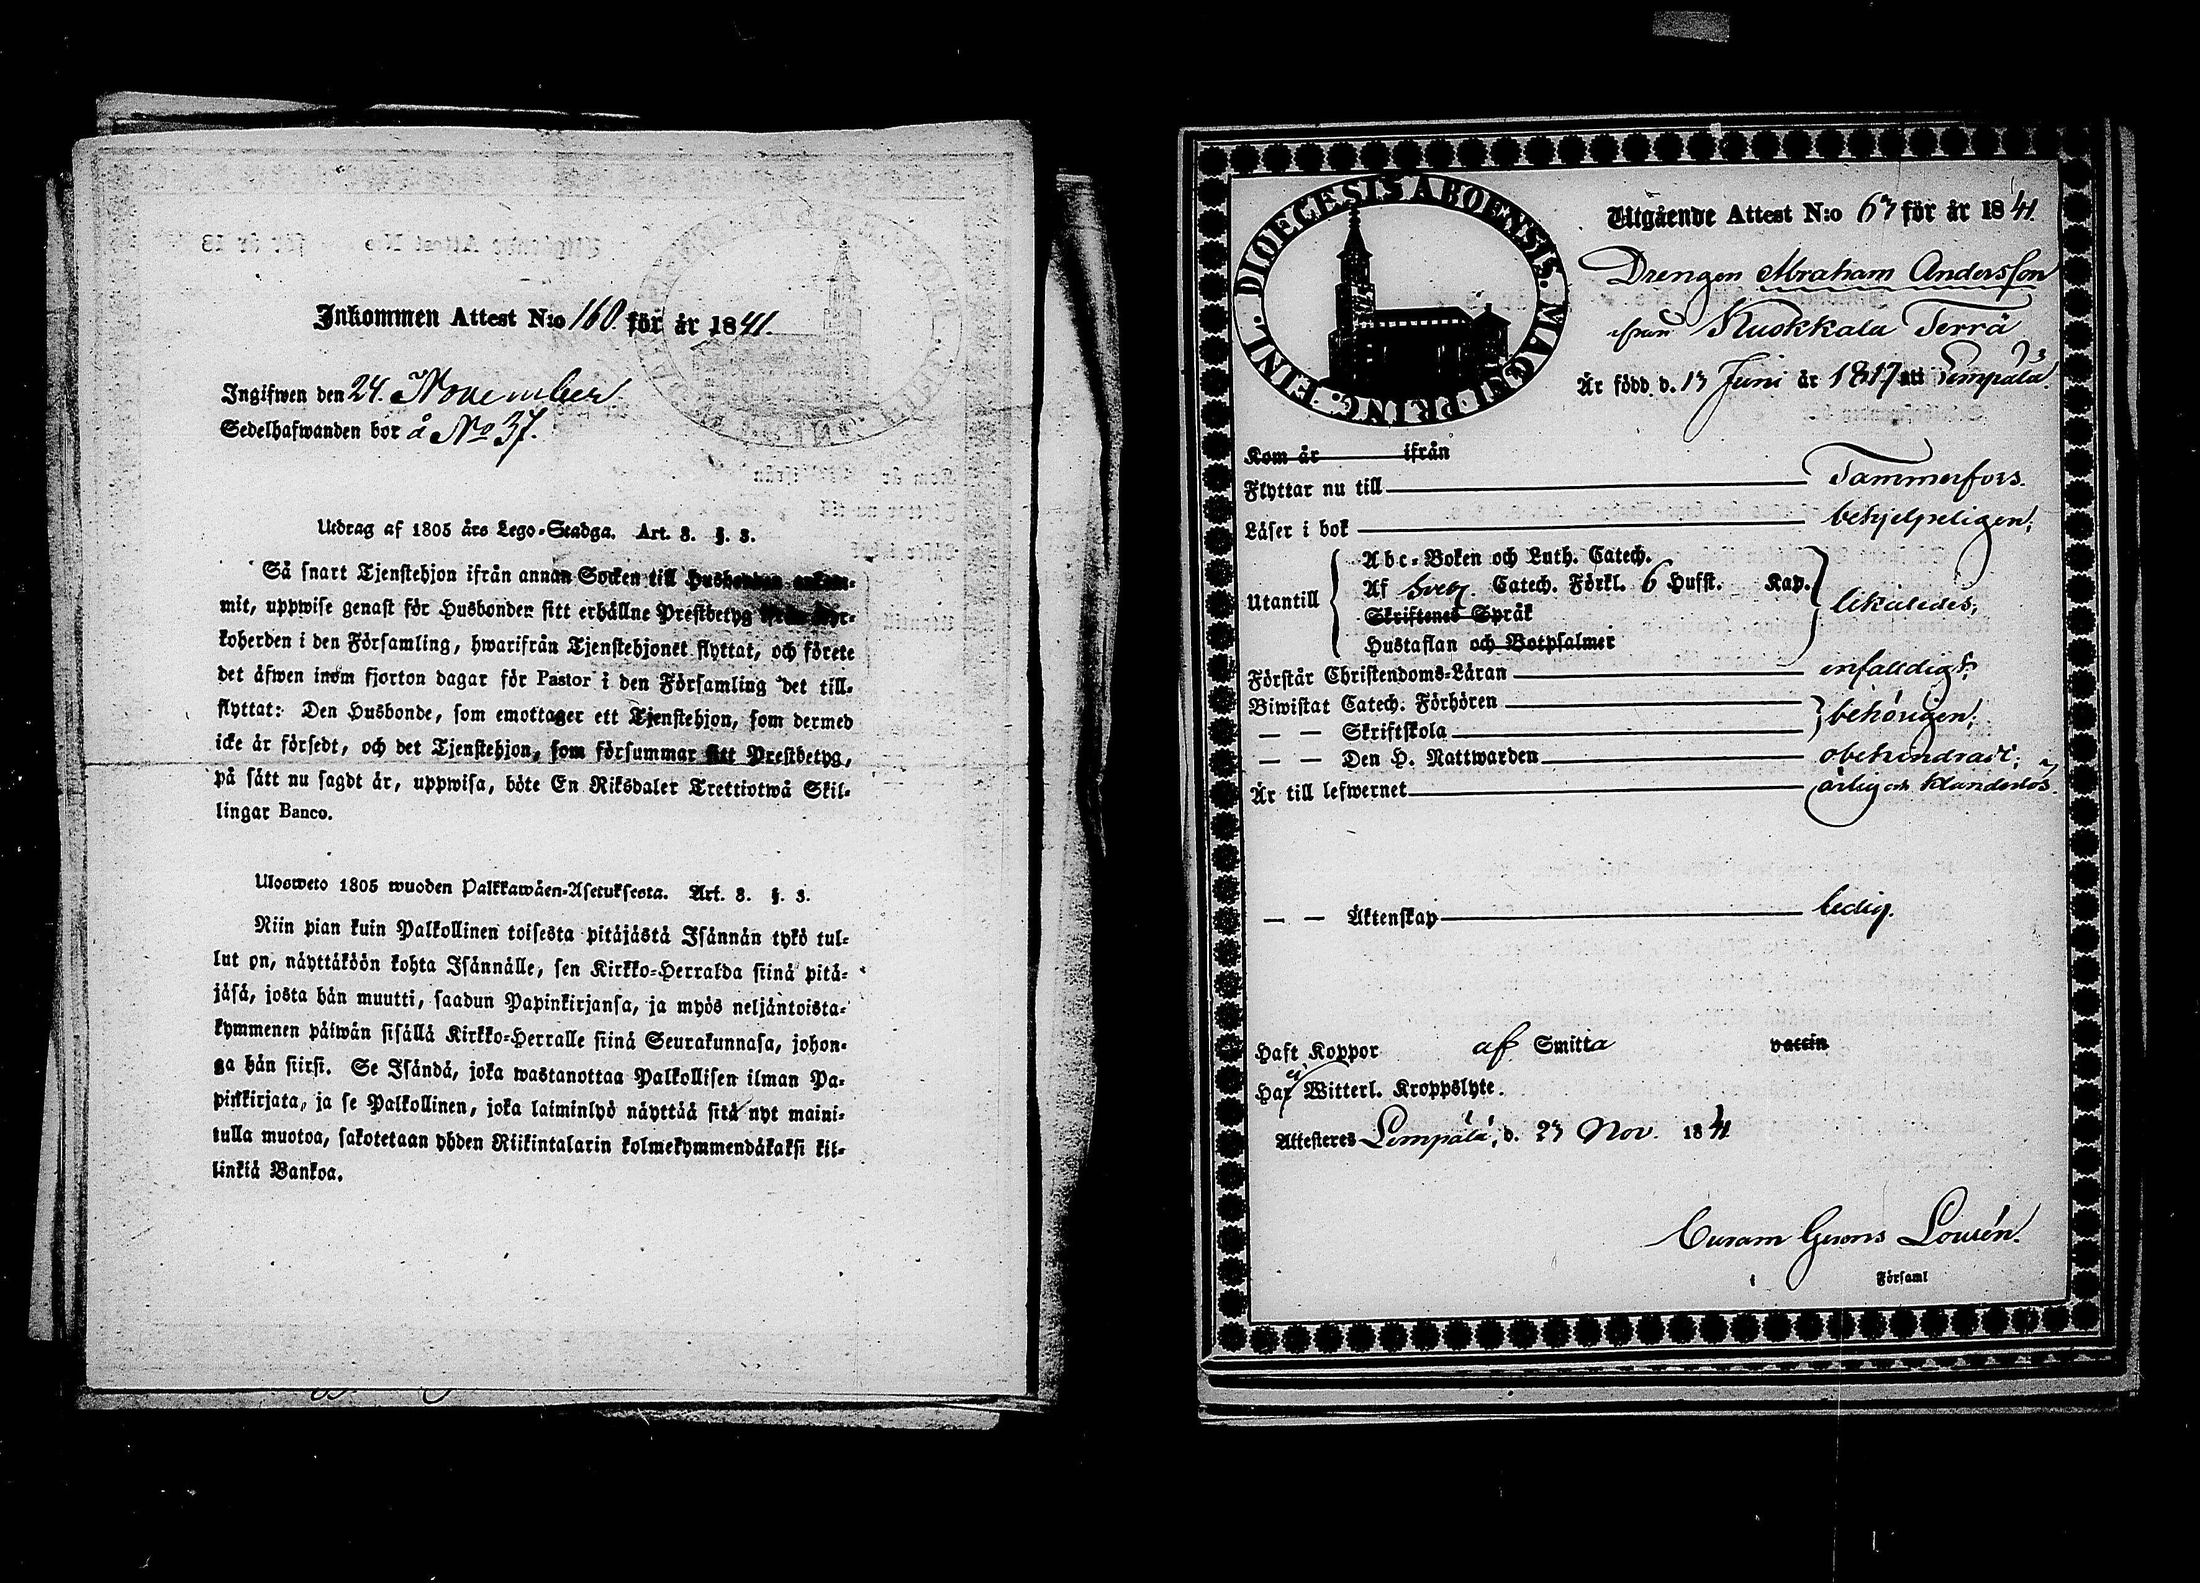 Inkommen Attest N:o 160. för år 1841.
Ingifwen den 24. November.
Sedelhafwanden bor å No 37.
Utdrag af 1805 års Lego-Stadga. Art. 3. §. 3.
Så snart Tjenstehjon ifrån annan Socken till Husbonden ankom-
mit, uppwise genast för Husbonden sitt erhållne Prestbetyg
koherden i den Församling, hwarifrån Tjenstehjonet flyttat, och förete
det äfwen inom fjorton dagar för Pastor i den Församling det till-
flyttat: Den Husbonde, som emottager ett Tjenstehjon, som dermed
icke är försedt, och det Tjenstehjon, som försummar sitt Prestbetyg,
på sätt nu sagdt är, uppwisa, böte En Riksdaler Trettiotwå Skil-
lingar Banco.
Ulosweto 1805 wuoden Palkkawäen-Asetuksesta. Art. 3. §. 3.
Niin pian kuin Palkollinen toisesta pitäjästä Isännän tykö tul-
lut on, näyttäköön kohta Isännälle, sen Kirkko-Herralda siinä pitä-
jäsä, josta hän muutti, saadun Papinkirjansa, ja myös neljäntoista-
kymmenen päiwän sisällä Kirkko-Herralle siinä Seurakunnasa, johon-
ga hän siirsi. Se Isändä, joka wastanottaa Palkollisen ilman Pa-
pinkirjata, ja se Palkollinen, joka laiminlyö näyttää sitä nyt maini-
tulla muotoa, sakotetaan yhden Riikintalarin kolmekymmendäkaksi kil-
linkiä Bankoa.
DIOECESIS ABOENSIS. MAGNI PRINC. FINL.
Utgående Attest N:o 63 för år 1841.
Drengen Abraham Andersson
ifrån Kuokkala Terrä
Är född d. 13 Juni år 1817 att Lempälä.
Kom år ifrån
Flyttar nu till Tammerfors.
Läser i bok behjelpeligen;
Utantill
Abc-Boken och Luth. Catech.
Af Sveb. Catech. Förkl. 6 Hufst. Kap.
Skriftenes Språk
Hustaflan och Botpsalmer
likaledes;
Förstår Christendoms-Läran enfalldigt;
Biwistat Catech. Förhören
— — Skriftskola behörigen;
— — Den H. Nattwarden obehindrad;
Är till lefwernet ärlig och klanderlös.
— — Äktenskap ledig.
Haft Koppor af Smitta vaccin
Har ej Witterl. Kroppslyte.
Attesteres Lempälä, d. 23 Nov. 1841
Curam Gerens
i Församl